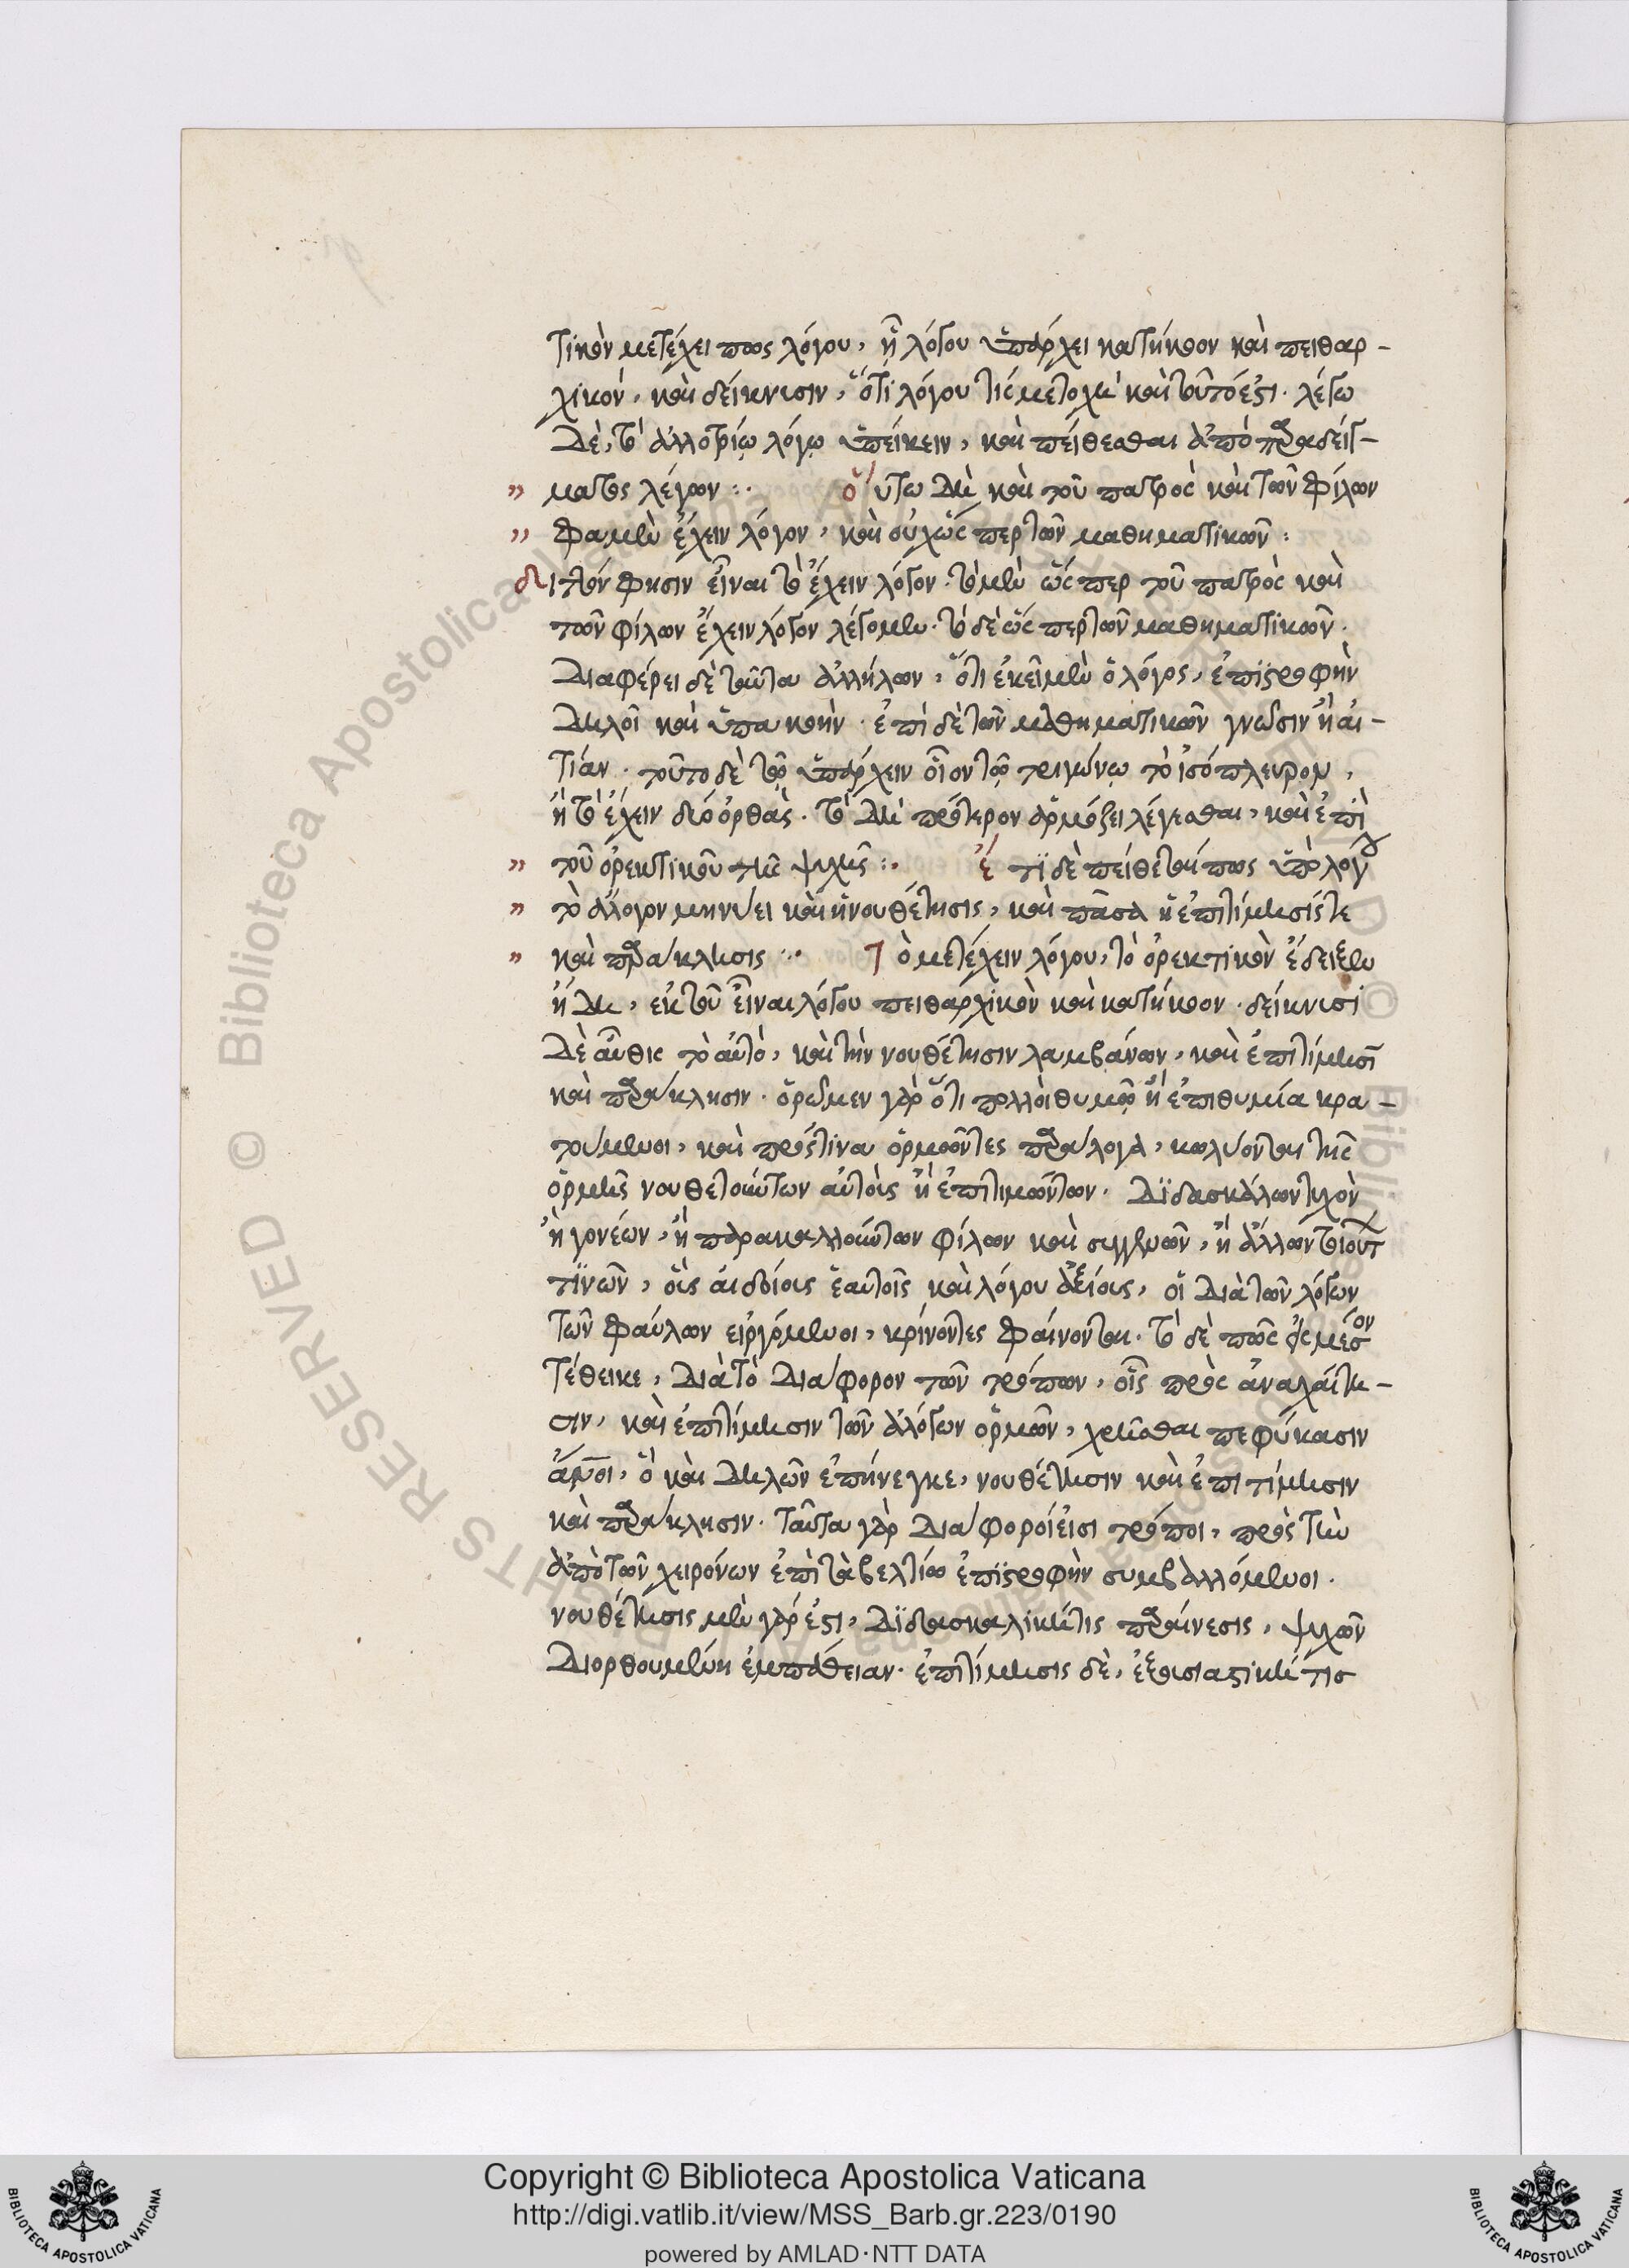 τικὸν μετέχει πως λόγου, ᾗ λόγου ὑπάρχει κατήκοον καὶ πειθαρ-
χικόν, καὶ δείκνυσιν, ὅτι λόγου τίς μετοχὴ καὶ τοῦτό ἐστι. λέγω
δὲ, τὸ ἀλλοτρίῳ λόγῳ ὑπείκειν, καὶ πείθεσθαι ἀπὸ παραδείγ-
ματος λέγων :. οὕτω δὴ καὶ τοῦ πατρὸς καὶ τῶν φίλων
φαμὲν ἔχειν λόγον, καὶ οὐχ ὥσπερ τῶν μαθηματικῶν :
διττόν φησιν εἶναι τὸ ἔχειν λόγον. τὸ μὲν ὥσπερ τοῦ πατρὸς καὶ
τῶν φίλων ἔχειν λόγον λέγομεν. τὸ δὲ ὥσπερ τῶν μαθηματικῶν.
διαφέρει δὲ ταῦτα ἀλλήλων, ὅτι ἐκεῖ μὲν ὁ λόγος, ἐπιστροφὴν
δηλοῖ καὶ ὑπακοήν. ἐπὶ δὲ τῶν μαθηματικῶν γνῶσιν ἢ αἰ-
τίαν. τοῦτο δὲ τῷ ὑπάρχειν οἷον τῷ τριγώνῳ τὸ ἰσόπλευρον,
ἢ τὸ ἔχειν δύο ὀρθάς. τὸ δὴ πρότερον ἁρμόξει λέγεσθαι, καὶ ἐπὶ
τοῦ ὀρεκτικοῦ τῆς ψυχῆς :. ἔτι δὲ πείθεταί πως ὑπὸ λόγου
τὸ ἄλογον μηνύει καὶ ἡ νουθέτησις, καὶ πᾶσα ἡ ἐπιτίμησίς τε
καὶ παράκλησις :. τὸ μετέχειν λόγου, τὸ ὀρεκτικὸν ἔδειξεν
ἤδη, ἐκ τοῦ εἶναι λόγου πειθαρχικὸν καὶ κατήκοον. δείκνυσι
δὲ αὖθις τὸ αὐτὸ, καὶ τὴν νουθέτησιν λαμβάνων, καὶ ἐπιτίμησιν
καὶ παράκλησιν. ὁρῶμεν γὰρ ὅτι πολλοὶ θυμῷ ἢ ἐπιθυμία κρα-
τούμενοι, καὶ πρός τινα ὁρμῶντες παράλογα, κωλύονται τῆς
ὁρμῆς νουθετούντων αὐτοὺς ἢ ἐπιτιμώντων. διδασκάλων τυχὸν
ἢ γονέων, ἢ παρακαλλούντων φίλων καὶ συγγενῶν, ἢ ἄλλων τοιούτων
τινῶν, οὓς αἰδοίους ἑαυτοῖς καὶ λόγου ἀξίους, οἱ διὰ τῶν λόγων
τῶν φαύλων εἰργόμενοι, κρίνοντες φαίνονται. τὸ δὲ πῶς ἐς μέσον
τέθεικε, διὰ τὸ διάφορον τῶν τρόπων, οἷς πρὸς ἀναχαίτη-
σιν, καὶ ἐπιτίμησιν τῶν ἀλόγων ὁρμῶν, χρῆσθαι πεφύκασιν
ἄνθρωποι, ὃ καὶ δηλῶν ἐπήνεγκε, νουθέτησιν καὶ ἐπιτίμησιν
καὶ παράκλησιν. ταῦτα γὰρ διάφοροί εἰσι τρόποι, πρὸς τὴν
ἀπὸ τῶν χειρόνων ἐπὶ τὰ βελτίω ἐπιστροφὴν συμβαλλόμενοι.
νουθέτησις μὲν γάρ ἐστι, διδασκαλική τις παραίνεσις, ψυχῶν
διορθουμένη ἐμπάθειαν. ἐπιτίμησις δὲ, ἐξουσιαστική τις
Copyright © Biblioteca Apostolica Vaticana
http://digi.vatlib.it/view/MSS_Barb.gr.223/0190
powered by AMLAD·NTT DATA